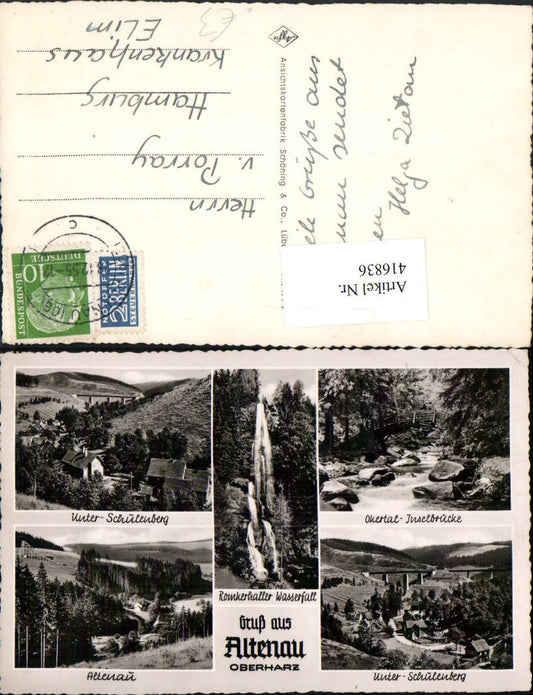 Herrn
v. Porray
Hamburg
Krankenhaus
Elim
Ansichtskartenfabrik Schöning & Co., Lüb
Grüße aus
sendet
Helga
Artikel Nr.
416836
10
DEUTSCHE
BUNDESPOST
NOTOPFER
2 BERLIN
STEUERMARKE
Unter-Schulenberg
Romkerhaller Wasserfall
Okertal-Inselbrücke
Altenau
Gruß aus
Altenau
OBERHARZ
Unter-Schulenberg